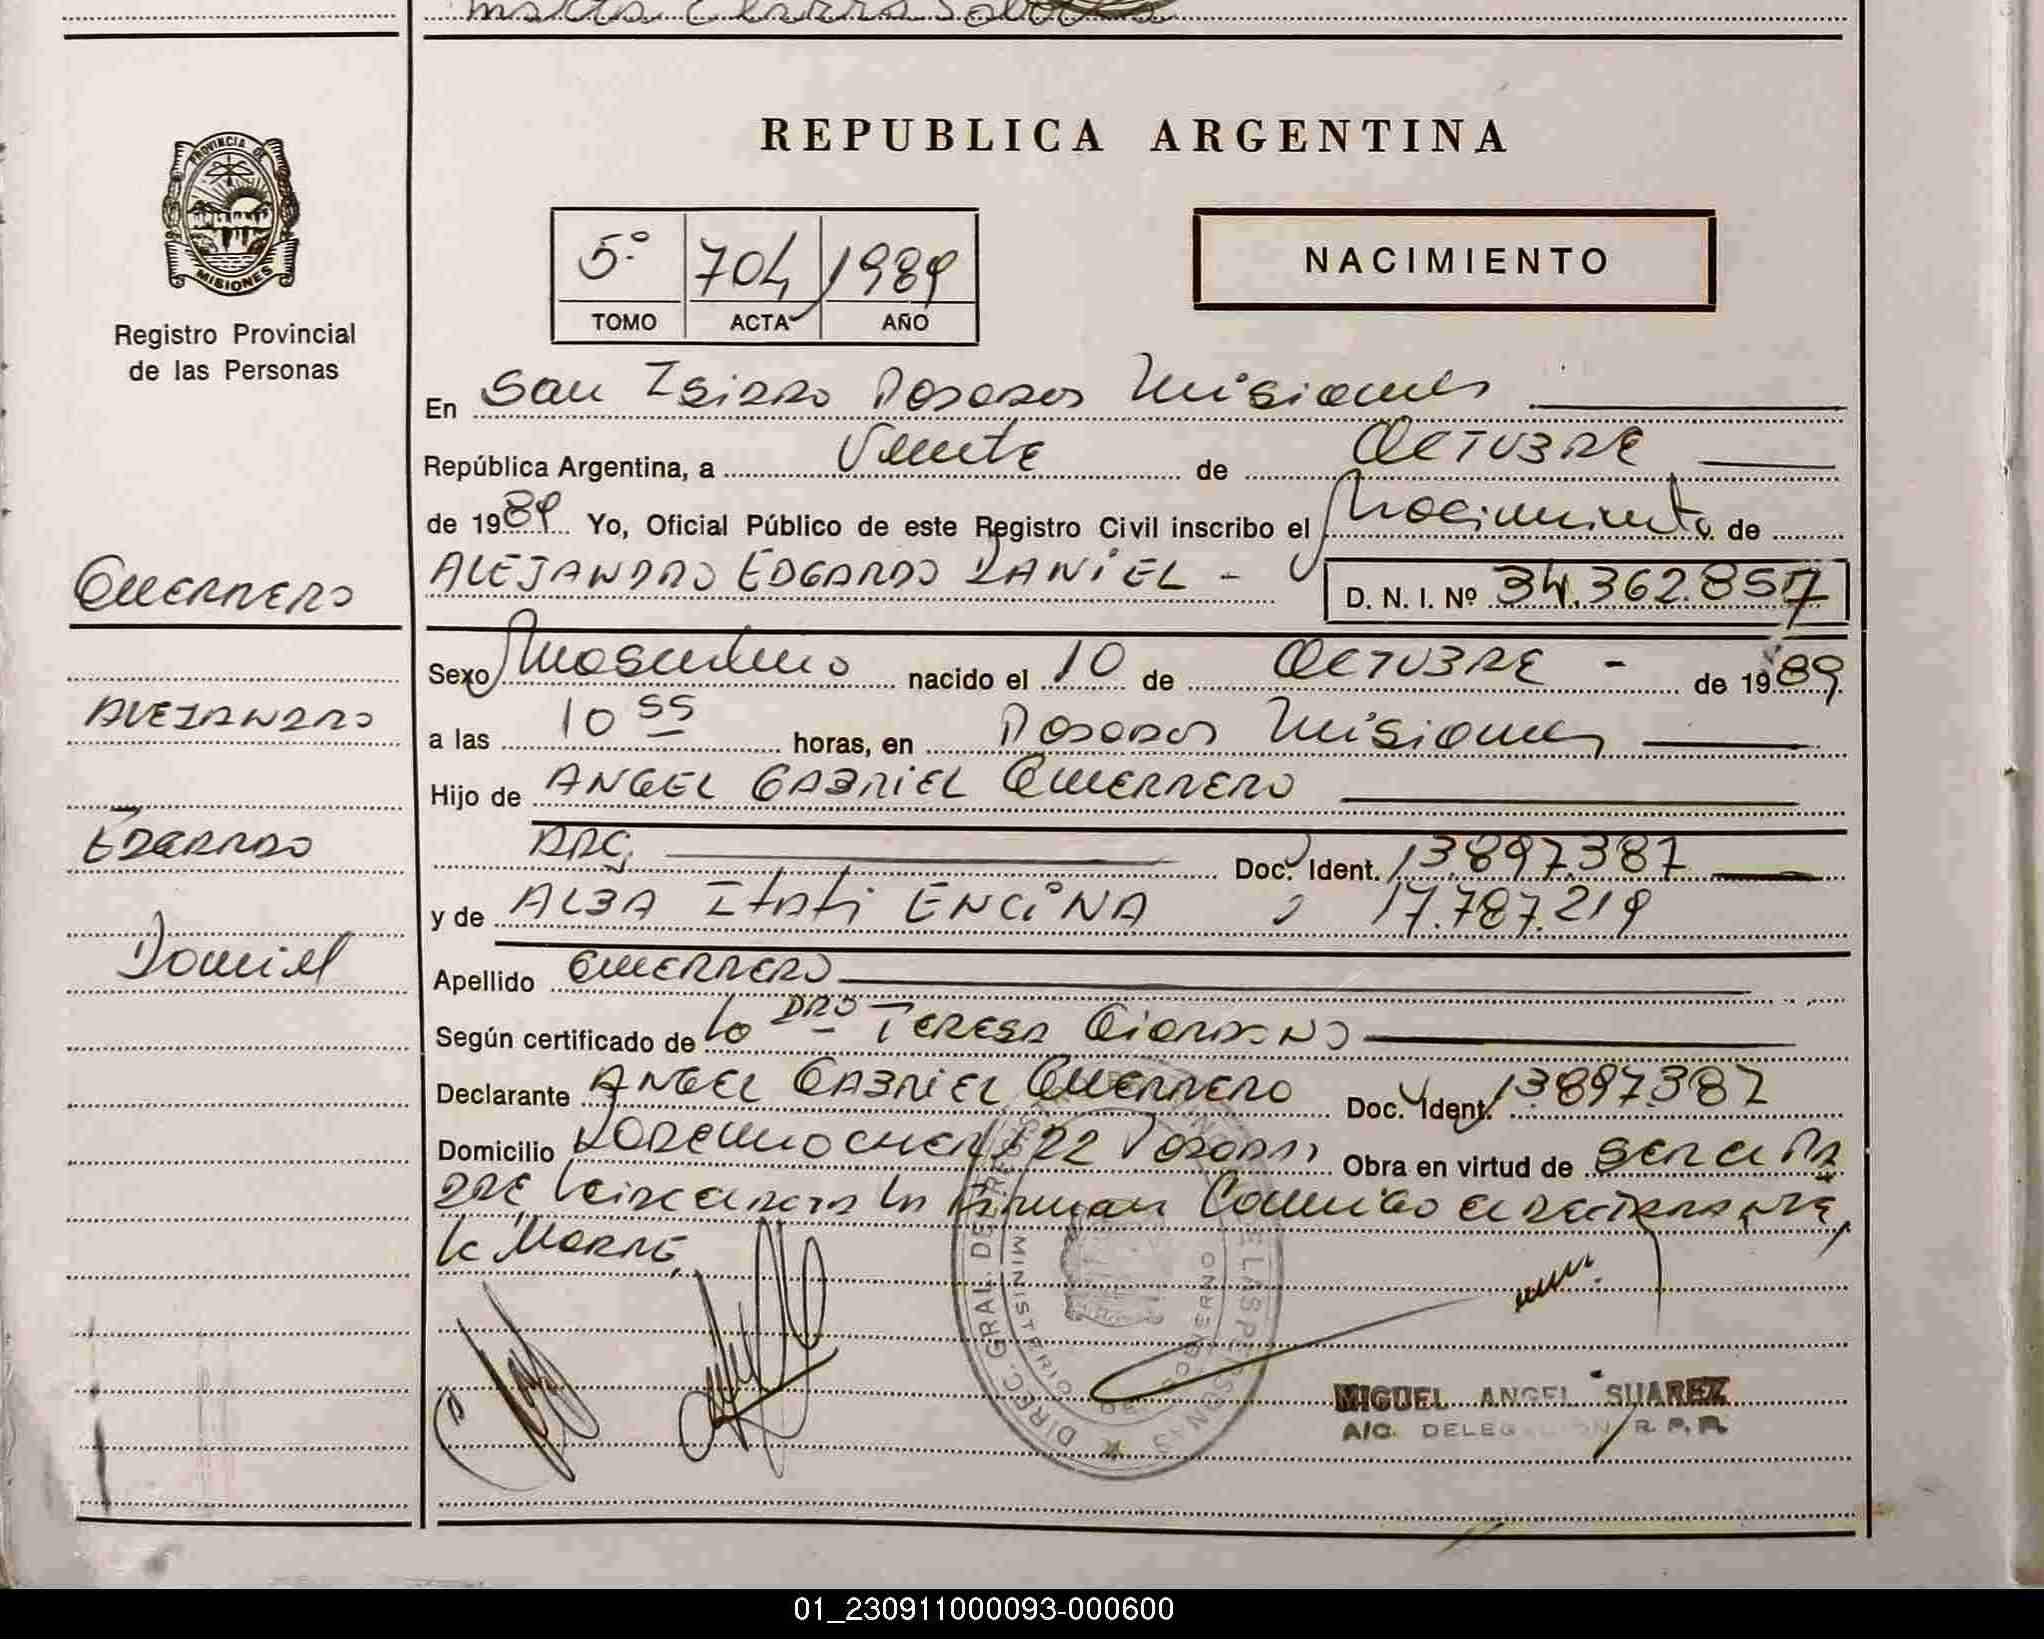 REPUBLICA ARGENTINA
PROVINCIA DE
MISIONES
Registro Provincial
de las Personas
5º 704 1989
TOMO ACTA AÑO
NACIMIENTO
En San Isidro Posadas Misiones
República Argentina, a Veinte de OCTUBRE
de 1989 Yo, Oficial Público de este Registro Civil inscribo el Nacimiento de
GUERRERO
ALEJANDRO EDGARDO DANIEL - D. N. I. Nº 34.362.857
Sexo Masculino nacido el 10 de OCTUBRE - de 1989
ALEJANDRO
a las 10 55 horas, en Posadas Misiones
Hijo de ANGEL GABRIEL GUERRERO
EDGARDO
ARG. Doc. Ident. 13.897.387
y de ALBA ITATI ENCINA 17.787.219
Daniel
Apellido GUERRERO
Según certificado de la DRA TERESA GIORDANO
Declarante ANGEL GABRIEL GUERRERO Doc. Ident. 13897387
Domicilio 122 Posadas Obra en virtud de
Firman Conmigo el declarante,
la Madre,
DIREC. GRAL. DEL REG. DE LAS PERSONAS
MINISTERIO DE GOBIERNO
MIGUEL ANGEL SUAREZ
A/C. DELEGACION R. P. P.
01_230911000093-000600